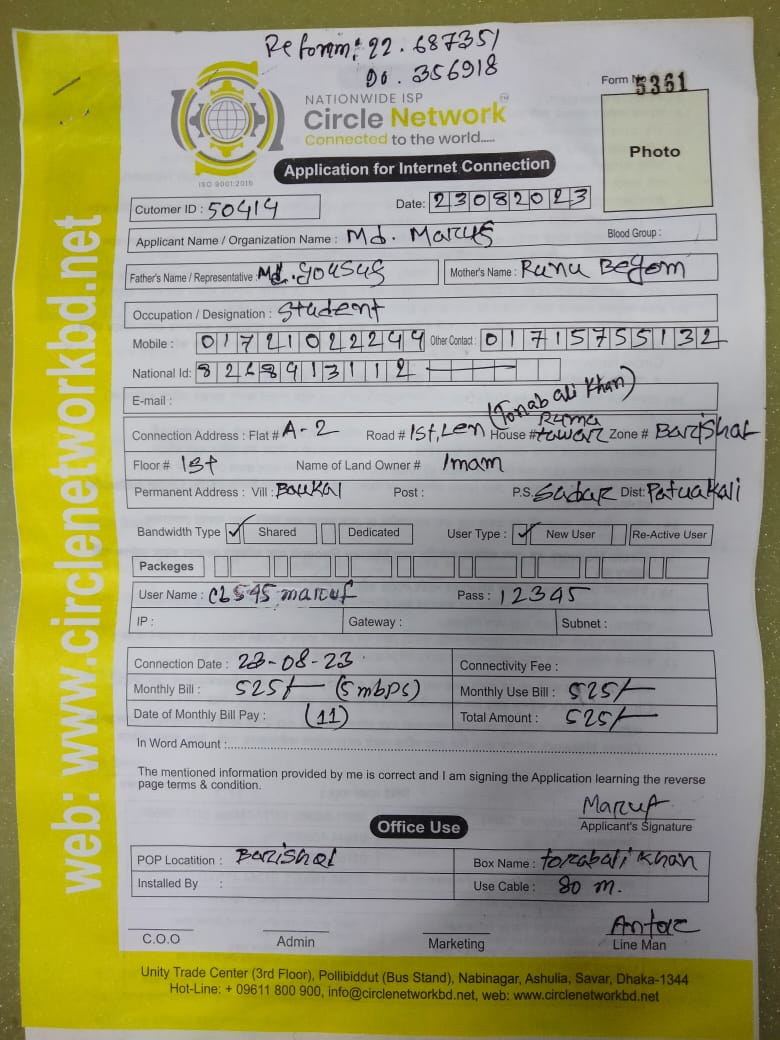 Reform: 22.687351
90.356918
Form No 5361
NATIONWIDE ISP
Circle Network
TM
Connected to the world.....
ISO 9001:2015
Photo
Application for Internet Connection
Cutomer ID : 50414
Date: 23082023
Applicant Name / Organization Name : Md. Maruf
Blood Group :
Father's Name / Representative : Md. Yousuf
Mother's Name : Runu Begom
Occupation / Designation : Student
Mobile : 01721022244
Other Contact : 01715755132
National Id: 8268913112
E-mail :
(Torab ali Khan)
Connection Address : Flat # A-2 Road # 1st, Len House # Ruma towar Zone # Barishal
Floor # 1st Name of Land Owner # Imam
Permanent Address : Vill : Baukal Post : P.S. Sadar Dist: Patuakali
Bandwidth Type ✓ Shared Dedicated User Type : ✓ New User Re-Active User
Packeges
User Name : CL545 maruf Pass : 12345
IP : Gateway : Subnet :
Connection Date : 23-08-23 Connectivity Fee :
Monthly Bill : 525/- (5 mbps) Monthly Use Bill : 525/-
Date of Monthly Bill Pay : (11) Total Amount : 525/-
In Word Amount :
The mentioned information provided by me is correct and I am signing the Application learning the reverse
page terms & condition.
Maruf
Applicant's Signature
Office Use
POP Locatition : Barishal Box Name : torabali Khan
Installed By : Use Cable : 80 m.
Antor
C.O.O Admin Marketing Line Man
Unity Trade Center (3rd Floor), Pollibiddut (Bus Stand), Nabinagar, Ashulia, Savar, Dhaka-1344
Hot-Line: + 09611 800 900, info@circlenetworkbd.net, web: www.circlenetworkbd.net
web: www.circlenetworkbd.net